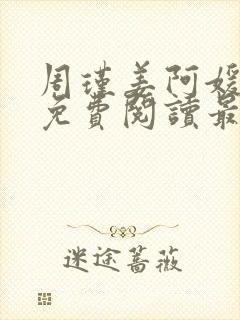 周瑾姜阿媛
免費閱讀最
迷途薔薇